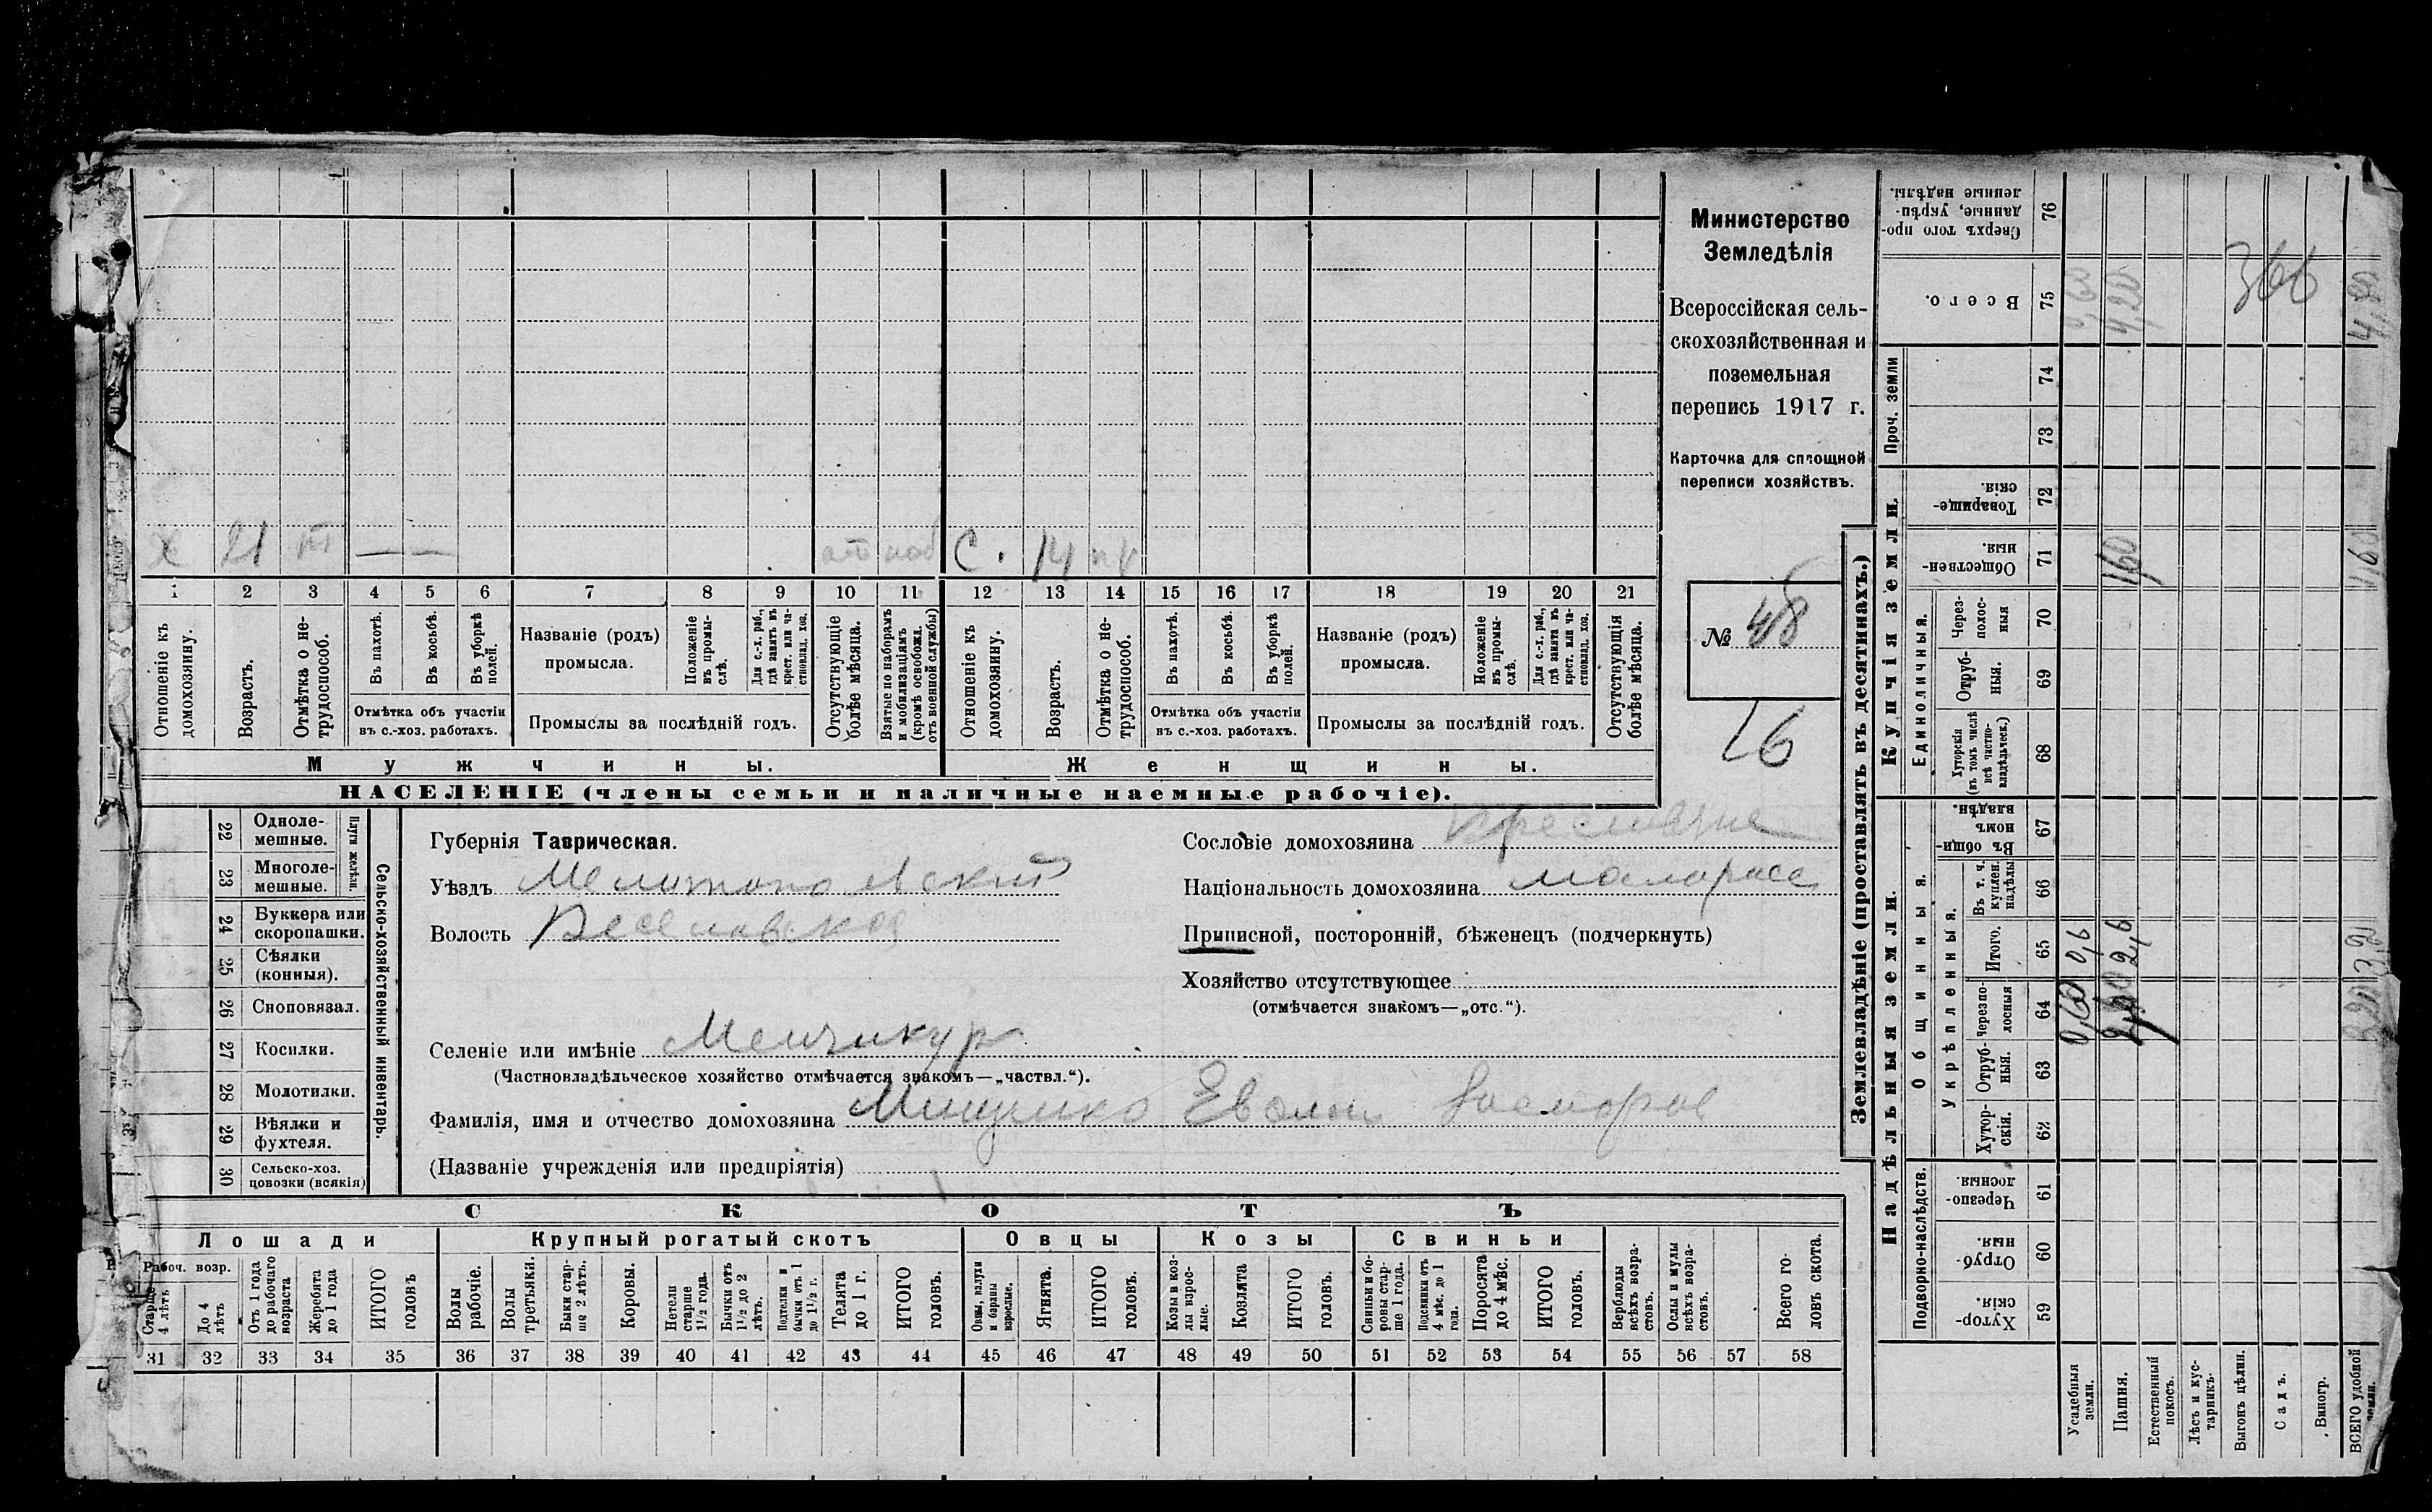 х 21 — — С. 14
1 2 3 4 5 6 7 8 9 10 11 12 13 14 15 16 17 18 19 20 21
Отношеніе къ домохозяину.
Возрастъ.
Отмѣтка о не-трудоспособ.
Въ пахотѣ.
Въ косьбѣ.
Въ уборкѣ полей.
Отмѣтка объ участіи
въ с.-хоз. работахъ.
Названіе (родъ)
промысла.
Положеніе въ промы-слѣ.
Для с.-х. раб., гдѣ занятъ въ крест. или ча-стновлад. хоз.
Промыслы за послѣдній годъ.
Отсутствующіе болѣе мѣсяца.
Взятые по наборамъ и мобилизаціямъ (кромѣ освобожд. отъ военной службы)
Отношеніе къ домохозяину.
Возрастъ.
Отмѣтка о не-трудоспособ.
Въ пахотѣ.
Въ косьбѣ.
Въ уборкѣ полей.
Отмѣтка объ участіи
въ с.-хоз. работахъ.
Названіе (родъ)
промысла.
Положеніе въ промы-слѣ.
Для с.-х. раб., гдѣ занята въ крест. или ча-стновлад. хоз.
Промыслы за послѣдній годъ.
Отсутствующія болѣе мѣсяца.
Мужчины.
Женщины.
НАСЕЛЕНІЕ (члены семьи и наличные наемные рабочіе).
Министерство
Земледѣлія
Всероссійская сель-
скохозяйственная и
поземельная
перепись 1917 г.
Карточка для сплощной
переписи хозяйствъ.
№ 48
16
22 Одноле-мешные.
23 Многоле-мешные.
Плуги желѣзн.
24 Буккера или скоропашки.
25 Сѣялки (конныя).
26 Сноповязал.
27 Косилки.
28 Молотилки.
29 Вѣялки и фухтеля.
30 Сельско-хоз. повозки (всякія)
Сельско-хозяйственный инвентарь.
Губернія Таврическая.
Уѣздъ Мелитопольскій
Волость Веселовская
Сословіе домохозяина
Національность домохозяина малоросс
Приписной, посторонній, бѣженецъ (подчеркнуть)
Хозяйство отсутствующее
(отмѣчается знакомъ—„отс.“).
Селеніе или имѣніе Менчикур
(Частновладѣльческое хозяйство отмѣчается знакомъ—„частвл.“).
Фамилія, имя и отчество домохозяина
(Названіе учрежденія или предпріятія)
СКОТЪ
Лошади
Рабоч. возр.
Старше 4 лѣтъ
До 4 лѣтъ
Отъ 1 года до рабочаго возраста
Жеребята до 1 года
ИТОГО головъ
Крупный рогатый скотъ
Волы рабочіе.
Волы третьяки.
Быки стар-ше 2 лѣтъ.
Коровы.
Нетели старше 1½ года.
Бычки отъ 1½ до 2 лѣтъ.
Подтелки и бычки отъ 1 до 1½ г.
Телята до 1 г.
ИТОГО головъ.
Овцы
Овцы, валухи и бараны взрослые.
Ягнята.
ИТОГО головъ.
Козы
Козы и коз-лы взрос-лые.
Козлята
ИТОГО головъ.
Свиньи
Свиньи и бо-ровы стар-ше 1 года.
Подсвинки отъ 4 мѣс. до 1 года.
Поросята до 4 мѣс.
ИТОГО головъ.
Верблюды всѣхъ возра-стовъ.
Ослы и мулы всѣхъ возра-стовъ.
Всего го-ловъ скота.
31 32 33 34 35 36 37 38 39 40 41 42 43 44 45 46 47 48 49 50 51 52 53 54 55 56 57 58
Землевладѣніе (проставлять въ десятинахъ.)
Надѣльныя земли.
Подворно-наслѣдств.
Хутор-скія. 59
Отруб-ныя. 60
Черезпо-лосныя 61
Общинныя.
Укрѣпленныя.
Хутор-скія. 62
Отруб-ныя. 63
Черезпо-лосныя 64
Итого. 65
Въ т. ч. куплен. надѣлы 66
Въ общи-номъ владѣн. 67
Купчія земли.
Единоличныя.
Хуторскія (въ томъ числѣ всѣ частно-владѣльческ.) 68
Отруб-ныя. 69
Через-полос-ныя 70
Обществен-ныя. 71
Товарище-скія. 72
Проч. земли
73 74
Всего. 75
Сверхъ того про-данные, укрѣп-ленные надѣлы. 76
Усадебныя земли. 0,60 0,6
Пашня. 2,6 1,60 4,20
Естественный покосъ.
Лѣсъ и кус-тарникъ.
Выгонъ цѣлин.
366
Садъ.
Виногр.
ВСЕГО удобной земли. 3,20 3,2 1,60 4,80